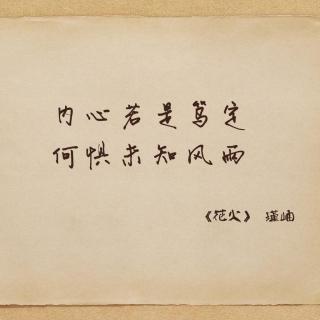 内心若是笃定
何惧未知风雨
《花火》 瑾崅